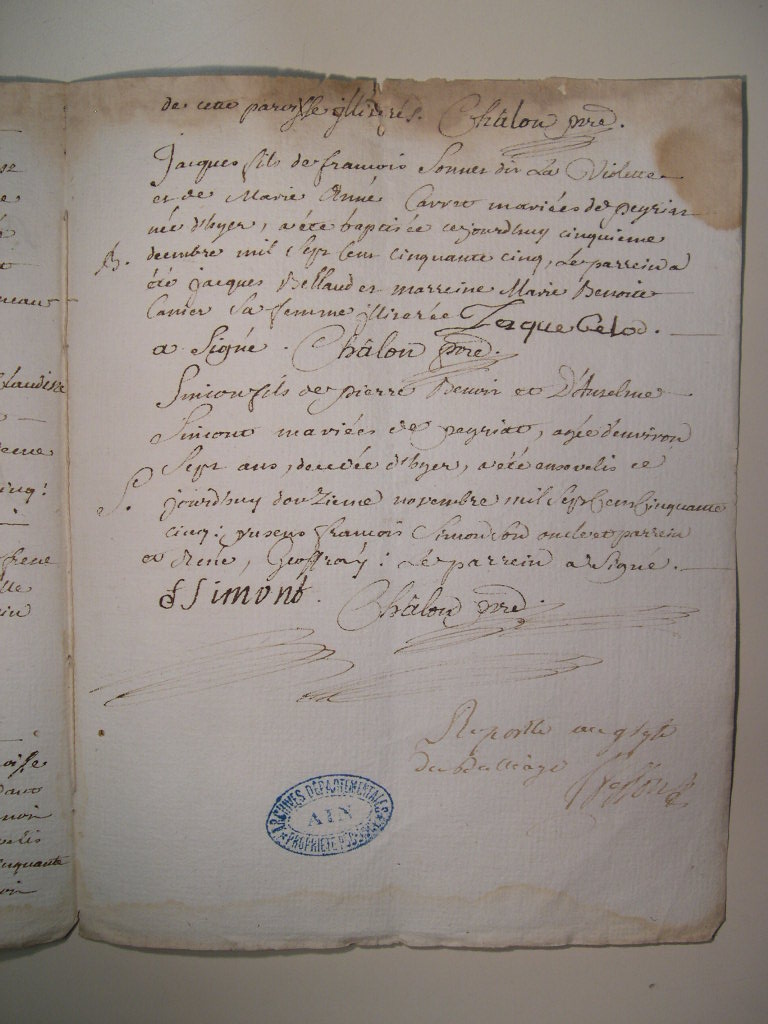 de cette paroisse illiterés. Châlon pre.
Jacques fils de francois Sonner dit La Violette
et de Marie Anne Carret mariées de peyriat
née d'hyer, a été baptisée ce jourdhuy cinquieme
B. decembre mil sept cent cinquante cinq, Le parrein a
été jacques Bellaud et marreine Marie Benoite
Canier Sa femme illiterée Jaque Belod.
a Signé. Châlon pre.
Simion fils de pierre Benoit et D'Anselme
Simont mariées de peyriat, agée d'environ
Sept ans, decedée d'hyer, a été ensevelis ce
S. jourdhuy douzieme novembre mil Sept Cent Cinquante
cinq: presens francois Simond son oncle et parrein
et René, Geoffray: Le parrein a Signé.
f Simont. Châlon pre.
Reporté au greffe
du bailliage
ARCHIVES DÉPARTEMENTALES
AIN
PROPRIÉTÉ PUBLIQUE
oisse
cinquante